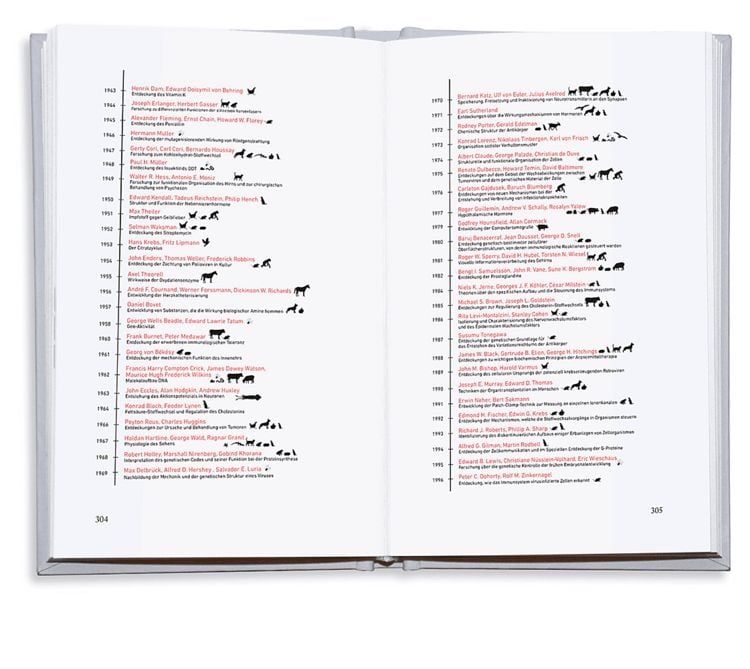 1943 Henrik Dam; Edward Doisymil von Behring
Entdeckung des Vitamin K
1944 Joseph Erlanger, Herbert Gasser
Forschung zu differenzierten Funktionen der einzelnen Nervenfasern
1945 Alexander Fleming, Ernst Chain, Howard W. Florey
Entdeckung des Penicillin
1946 Hermann Muller
Entdeckung der mutageninduzierenden Wirkung von Röntgenstrahlung
1947 Gerty Cori, Carl Cori, Bernardo Houssay
Forschung zum Kohlenhydrat-Stoffwechsel
1948 Paul H. Müller
Entdeckung des Insektizids DDT
1949 Walter R. Hess, Antonio E. Moniz
Forschung zur funktionalen Organisation des Hirns und zur chirurgischen
Behandlung von Psychosen
1950 Edward Kendall, Tadeus Reichstein, Philip Hench
Struktur und Funktion der Nebennierenhormone
1951 Max Theiler
Impfstoff gegen Gelbfieber
1952 Selman Waksman
Entdeckung des Streptomycin
1953 Hans Krebs, Fritz Lipmann
Der Citratzyklus
1954 John Enders, Thomas Weller, Frederick Robbins
Entdeckung der Züchtung von Polioviren in Kultur
1955 Axel Theorell
Wirkweise der Oxydationsenzyme
1956 André F. Cournand, Werner Forssmann, Dickinson W. Richards
Entwicklung der Herzkatheterisierung
1957 Daniel Bovet
Entwicklung von Substanzen, die die Wirkung biologischer Amine hemmen
1958 George Wells Beadle, Edward Lawrie Tatum
Gen-Aktivität
1960 Frank Burnet, Peter Medawar
Entdeckung der erworbenen immunologischen Toleranz
1961 Georg von Békésy
Entdeckung der mechanischen Funktion des Innenohrs
1962 Francis Harry Compton Crick, James Dewey Watson,
Maurice Hugh Frederick Wilkins
Molekülaufbau DNA
1963 John Eccles, Alan Hodgkin, Andrew Huxley
Entstehung des Aktionspotenzials in Neuronen
1964 Konrad Bloch, Feodor Lynen
Fettsäure-Stoffwechsel und Regulation des Cholesterins
1966 Peyton Rous, Charles Huggins
Entdeckungen zur Ursache und Behandlung von Tumoren
1967 Haldan Hartline, George Wald, Ragnar Granit
Physiologie des Sehens
1968 Robert Holley, Marshall Nirenberg, Gobind Khorana
Interpretation des genetischen Codes und seiner Funktion bei der Proteinsynthese
1969 Max Delbrück, Alfred D. Hershey, Salvador E. Luria
Nachbildung der Mechanik und der genetischen Struktur eines Viruses
304
1970 Bernard Katz, Ulf von Euler, Julius Axelrod
Speicherung, Freisetzung und Inaktivierung von Neurotransmittern an den Synapsen
1971 Earl Sutherland
Entdeckungen über die Wirkungsmechanismen von Hormonen
1972 Rodney Porter, Gerald Edelman
Chemische Struktur der Antikörper
1973 Konrad Lorenz, Nikolaas Tinbergen, Karl von Frisch
Organisation sozialer Verhaltensmuster
1974 Albert Claude, George Palade, Christian de Duve
Strukturelle und funktionale Organisation der Zellen
1975 Renato Dulbecco, Howard Temin, David Baltimore
Entdeckungen auf dem Gebiet der Wechselwirkungen zwischen
Tumorviren und dem genetischen Material der Zelle
1976 Carleton Gajdusek, Baruch Blumberg
Entdeckungen von neuen Mechanismen bei der
Entstehung und Verbreitung von Infektionskrankheiten
1977 Roger Guillemin, Andrew V. Schally, Rosalyn Yalow
Hypothalamische Hormone
1979 Godfrey Hounsfield, Allan Cormack
Entwicklung der Computertomografie
1980 Baruj Benacerraf, Jean Dausset, George D. Snell
Entdeckung genetisch bestimmter zellulärer
Oberflächenstrukturen, von denen immunologische Reaktionen gesteuert werden
1981 Roger W. Sperry, David H. Hubel, Torsten N. Wiesel
Visuelle Informationsverarbeitung des Gehirns
1982 Bengt I. Samuelsson, John R. Vane, Sune K. Bergstrom
Entdeckung der Prostaglandine
1984 Niels K. Jerne, Georges J. F. Köhler, César Milstein
Theorien über den spezifischen Aufbau und die Steuerung des Immunsystems
1985 Michael S. Brown, Joseph L. Goldstein
Entdeckungen zur Regulierung des Cholesterin-Stoffwechsels
1986 Rita Levi-Montalcini, Stanley Cohen
Isolierung und Charakterisierung des Nervenwachstumsfaktors
und des Epidermalen Wachstumsfaktors
1987 Susumu Tonegawa
Entdeckung der genetischen Grundlage für
das Entstehen des Variationsreichtums der Antikörper
1988 James W. Black, Gertrude B. Elion, George H. Hitchings
Entdeckung wichtiger biochemischer Prinzipien der Arzneimitteltherapie
1989 John M. Bishop, Harold Varmus
Entdeckung des zellulären Ursprungs der potenziell krebserzeugenden Retroviren
1990 Joseph E. Murray, Edward D. Thomas
Techniken der Organtransplantation
1991 Erwin Neher, Bert Sakmann
Entwicklung der Patch-Clamp-Technik zur Messung an einzelnen Ionenkanälen
1992 Edmond H. Fischer, Edwin G. Krebs
Entdeckung der Mechanismen, welche die Stoffwechselvorgänge in Organismen steuern
1993 Richard J. Roberts, Phillip A. Sharp
Identifizierung des diskontinuierlichen Aufbaus einiger Erbanlagen von Zellorganismen
1994 Alfred G. Gilman, Martin Rodbell
Entdeckung der Zellkommunikation und im Speziellen Entdeckung der G-Proteine
1995 Edward B. Lewis, Christiane Nüsslein-Volhard, Eric Wieschaus
Forschung über die genetische Kontrolle der frühen Embryonalentwicklung
1996 Peter C. Doherty, Rolf M. Zinkernagel
Entdeckung, wie das Immunsystem virusinfizierte Zellen erkennt
305